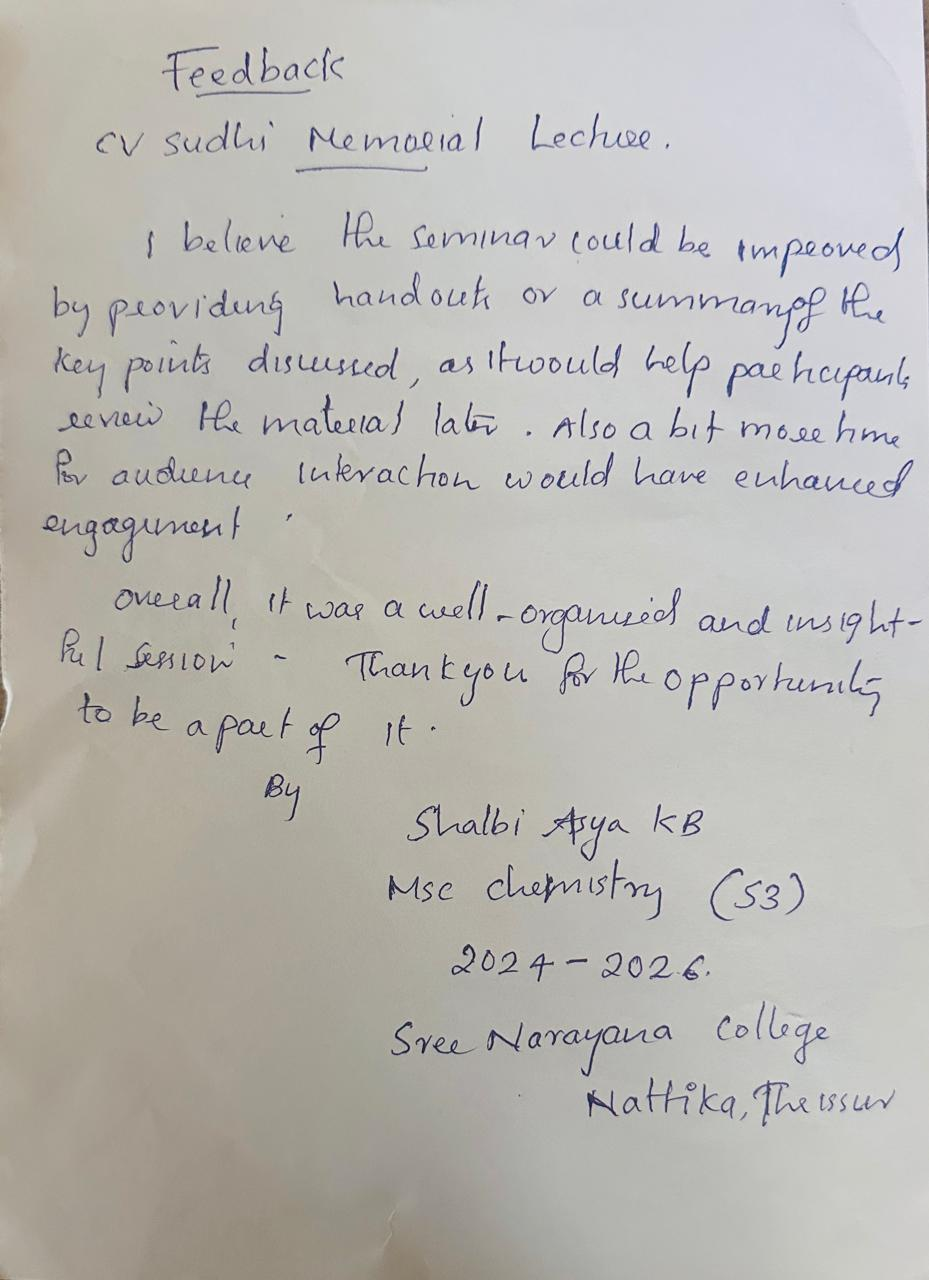 Feedback
CV Sudhi Memorial Lecture.
I believe the seminar could be improved
by providing handouts or a summary of the
key points discussed, as it would help participants
review the material later. Also a bit more time
for audience interaction would have enhanced
engagement.
Overall, it was a well-organized and insight-
ful session - Thank you for the opportunity
to be a part of it.
By
Shalbi Asya KB
Msc chemistry (S3)
2024-2026.
Sree Narayana College
Nattika, Thrissur